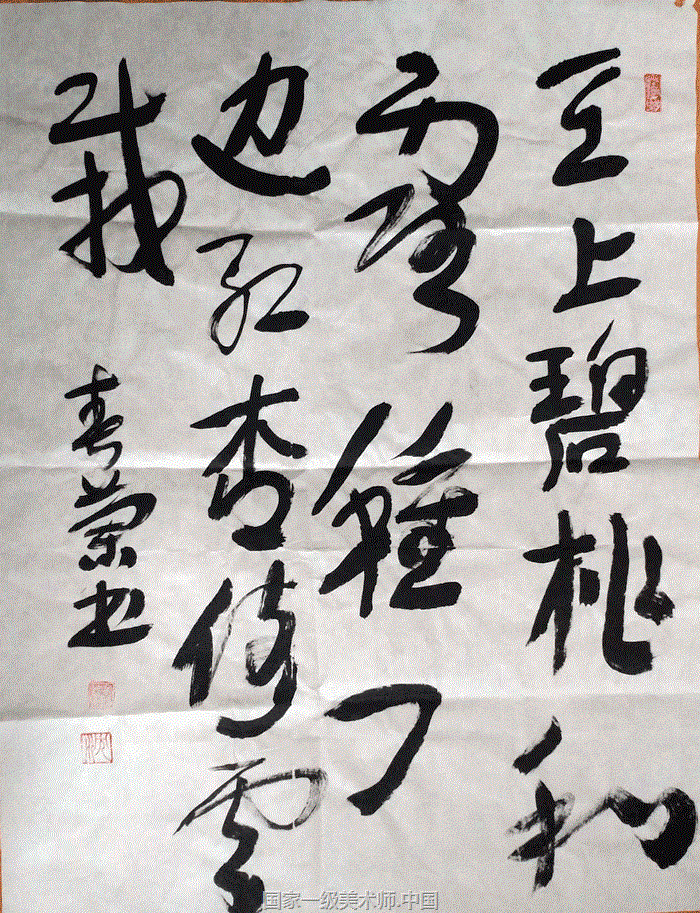 天上碧桃和
露種日
边红杏倚雲
栽
春荣书
国家一级美术师.中国